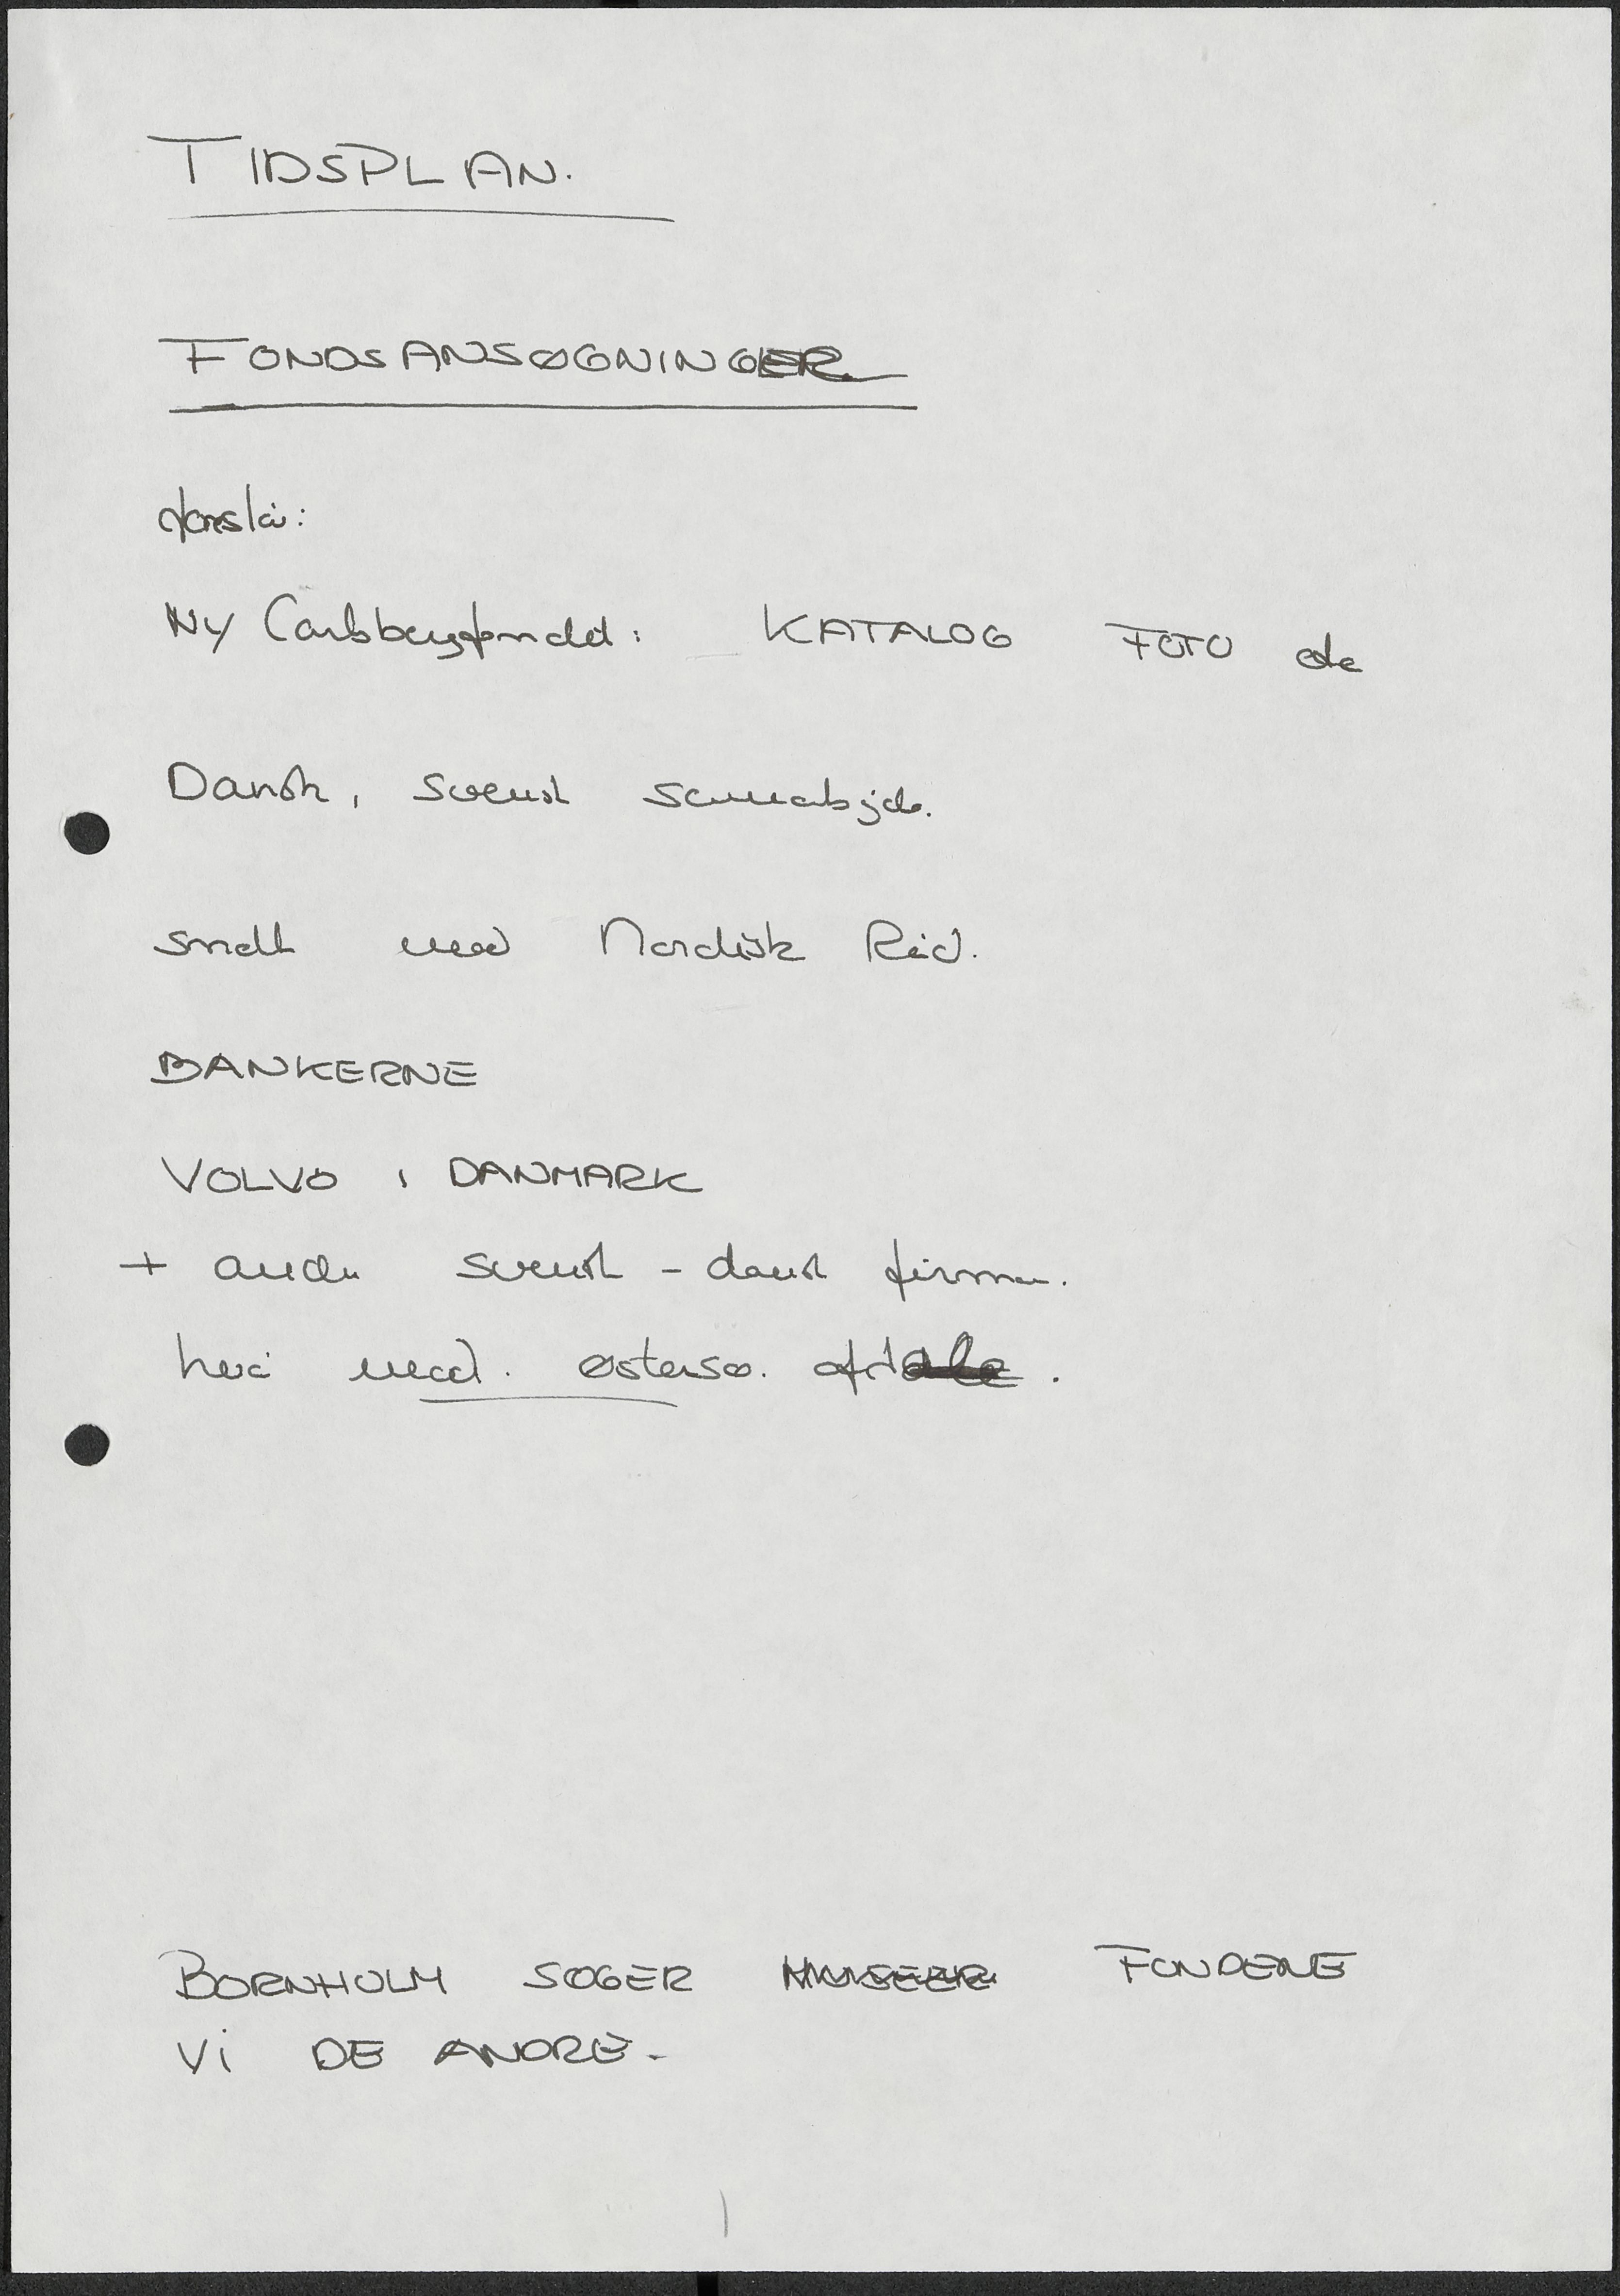 TIDSPLAN.
FONDSANSØGNINGER
forslår:
Ny Carlsbergfondet: KATALOG FOTO etc
Dansk, svensk samarbejde.
snakk med Nordisk Råd.
BANKERNE
VOLVO i DANMARK
+ andre svensk - dansk firma.
hvad med. østersø.
BORNHOLM SØGER MUSEER FONDENE
Vi DE ANDRE.